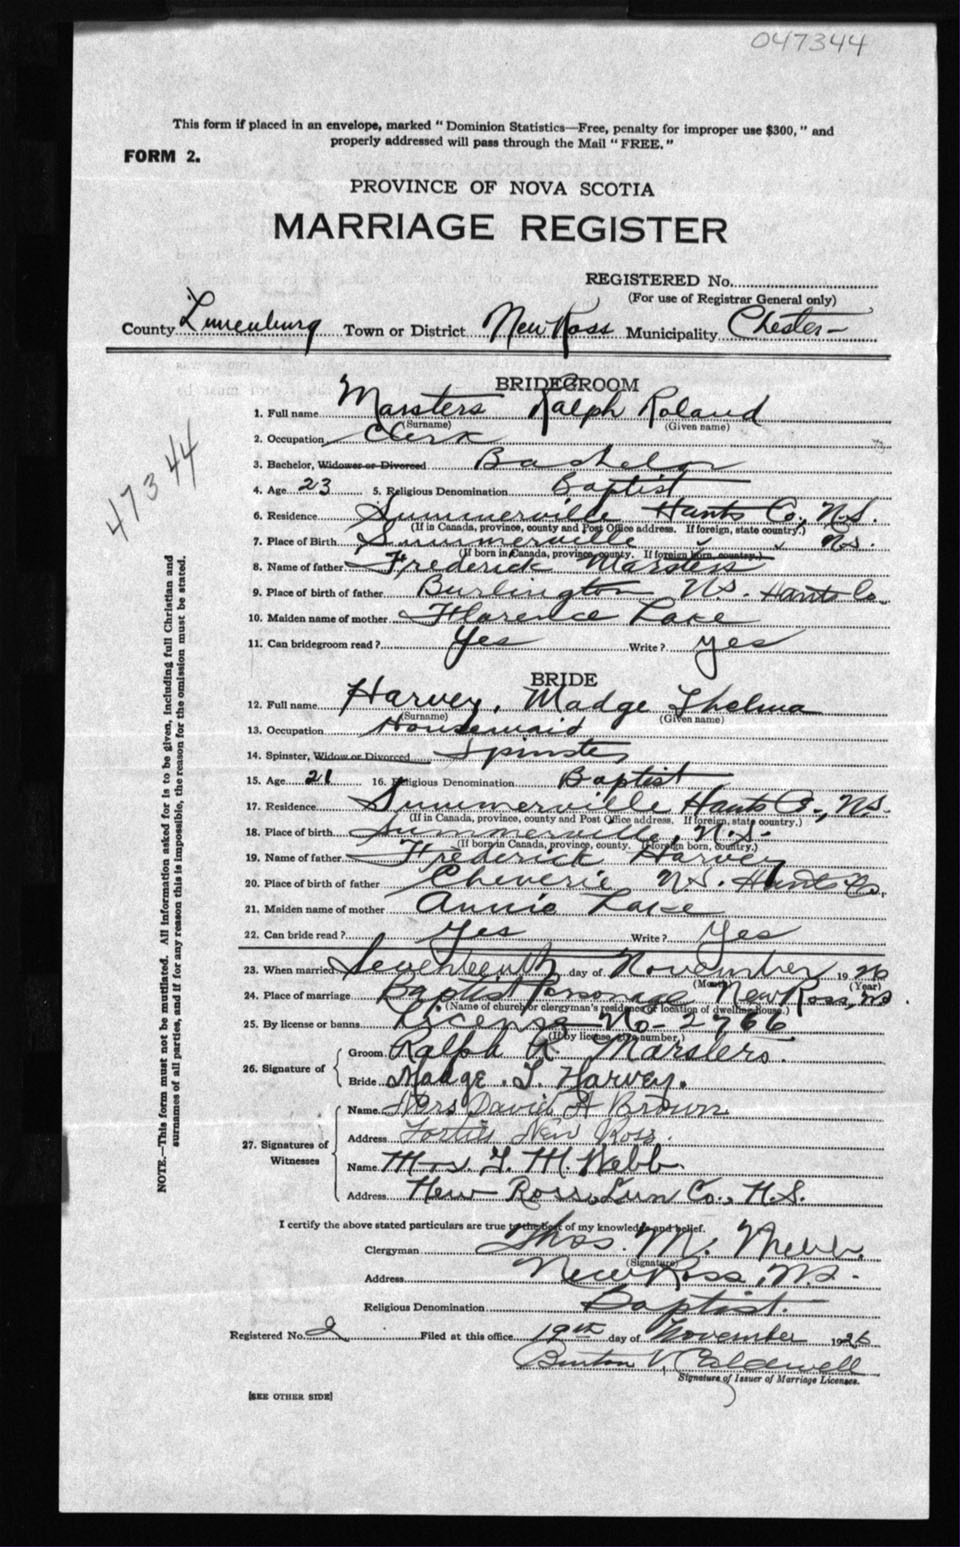 047344
This form if placed in an envelope, marked " Dominion Statistics—Free, penalty for improper use $300, " and
properly addressed will pass through the Mail " FREE. "
FORM 2.
PROVINCE OF NOVA SCOTIA
MARRIAGE REGISTER
REGISTERED No.
(For use of Registrar General only)
County Lunenburg Town or District New Ross Municipality Chester
47344
NOTE.—This form must not be mutilated. All information asked for is to be given, including full Christian and
surnames of all parties, and if for any reason this is impossible, the reason for the omission must be stated.
BRIDEGROOM
1. Full name Marsters Ralph Roland
(Surname) (Given name)
2. Occupation Clerk
3. Bachelor, Widower or Divorced Bachelor
4. Age 23 5. Religious Denomination Baptist
6. Residence Summerville Hants Co, N.S.
(If in Canada, province, county and Post Office address. If foreign, state country.)
7. Place of Birth Summerville " " N.S.
(If born in Canada, province, county. If foreign born, country.)
8. Name of father Frederick Marsters
9. Place of birth of father Burlington N.S. Hants Co.
10. Maiden name of mother Florence Lake
11. Can bridegroom read ? Yes Write ? yes
BRIDE
12. Full name Harvey, Madge Thelma
(Surname) (Given name)
13. Occupation Housemaid
14. Spinster, Widow or Divorced Spinster
15. Age 21 16. Religious Denomination Baptist
17. Residence Summerville Hants Co., N.S.
(If in Canada, province, county and Post Office address. If foreign, state country.)
18. Place of birth Summerville, N.S.
(If born in Canada, province, county. If foreign born, country.)
19. Name of father Frederick Harvey
20. Place of birth of father Cheverie N.S. Hants Co.
21. Maiden name of mother Annie Lake
22. Can bride read ? Yes Write ? Yes
23. When married Seventeenth day of November 1926
(Month) (Year)
24. Place of marriage Baptist Parsonage New Ross, N.S.
(Name of church or clergyman's residence or location of dwelling house.)
25. By license or banns License No- 2766
(If by license, give number.)
26. Signature of
Groom Ralph R. Marsters.
Bride Madge. T. Harvey.
27. Signatures of Witnesses
Name Mrs David A Brown
Address Forties New Ross.
Name Mrs. T. M. Webb
Address New Ross, Lun Co., N.S.
I certify the above stated particulars are true to the best of my knowledge and belief.
Clergyman Thos. M. Webb.
(Signature)
Address New Ross, N.S.
Religious Denomination Baptist.
Registered No. 2 Filed at this office 19th day of November 1926
Burton V. Caldwell
Signature of Issuer of Marriage Licenses.
[SEE OTHER SIDE]